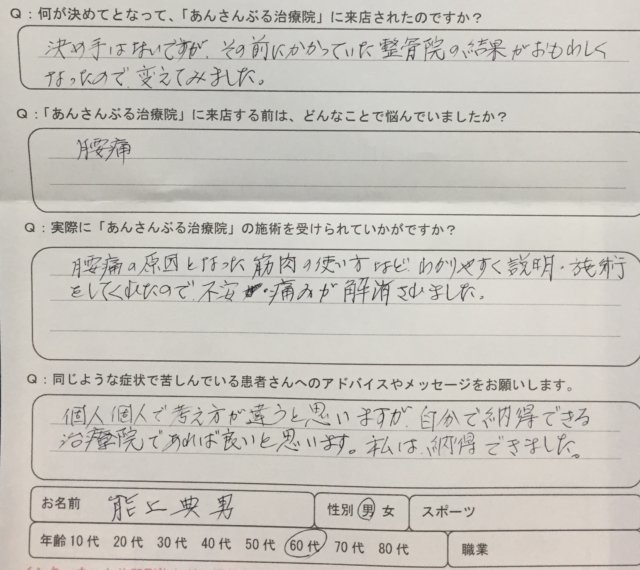 Q：何が決めてとなって、「あんさんぷる治療院」に来店されたのですか？
決め手はないですが、その前にかかっていた整骨院の結果がおもわしく
なったので、変えてみました。
Q：「あんさんぷる治療院」に来店する前は、どんなことで悩んでいましたか？
腰痛
Q：実際に「あんさんぷる治療院」の施術を受けられていかがですか？
腰痛の原因となった筋肉の使い方など、わかりやすく説明・施術
をしてくれたので、不安・痛みが解消されました。
Q：同じような症状で苦しんでいる患者さんへのアドバイスやメッセージをお願いします。
個人個人で考え方が違うと思いますが、自分で納得できる
治療院であれば良いと思います。私は、納得できました。
お名前 能上典男 性別 男 女 スポーツ
年齢 10代 20代 30代 40代 50代 60代 70代 80代 職業